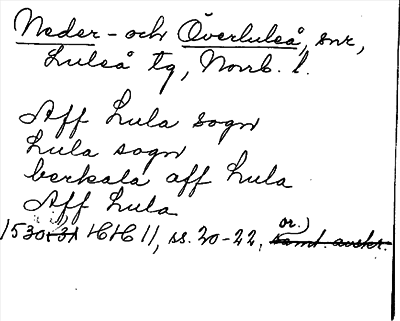 Neder- och Överluleå, snr,
Luleå tg, Norrb. l.
Aff Lula sogn
Lula sogn
berkala aff Lula
Aff Lula
1530-31 HH 11, ss. 20-22, or.) samt. avskr.